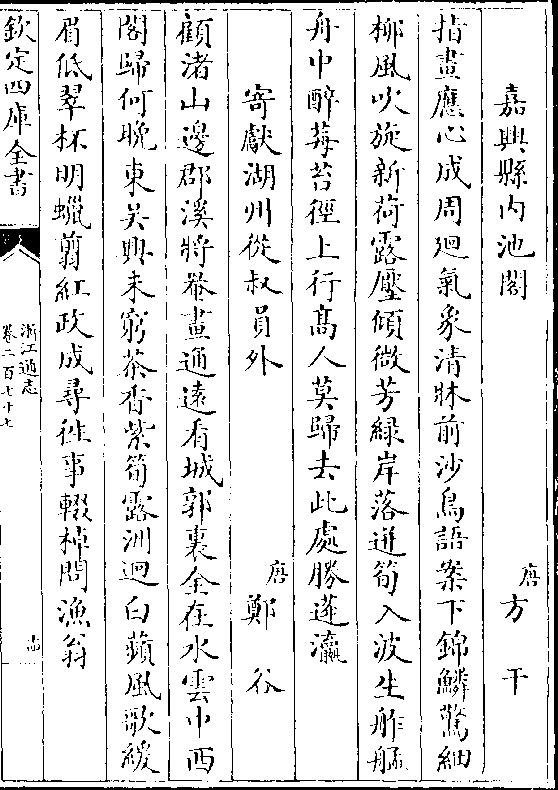 嘉興縣内池閣　唐方干
指畫應心成周迴氣象清牀前沙鳥語案下錦鱗驚細
柳風吹旋新荷露壓傾微芳緑岸落迸筍入波生舴艋
舟中醉莓苔徑上行髙人莫歸去此處勝蓬瀛
寄獻湖州從叔員外　唐鄭谷
顧渚山邊郡溪將罨畫通逺看城郭裏全在水雲中西
閣歸何晩東吴興未窮茶香紫筍露洲迴白蘋風歌緩
眉低翠杯明蠟翦紅政成尋徃事輟棹問漁翁
欽定四庫全書
浙江通志
卷二百七十七